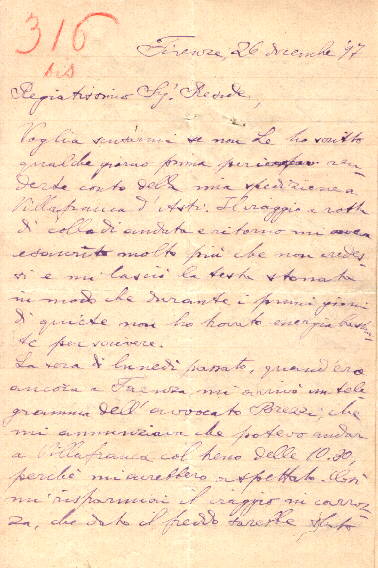 316
bis
Firenze, 26 dicembre '97
Pregiatissimo Sigr. Preside,
Voglia scusarmi se non Le ho scritto
qualche giorno prima per ren-
derle conto della mia spedizione a
Villafranca d'Asti. Il viaggio a rotta
di collo di andata e ritorno mi aveva
esaurito molto più che non credes-
si e mi lasciò la testa stonata
in modo che durante i primi giorni
di quiete non ho trovato energia bastan-
te per scrivere.
La sera di lunedì passato, quand'ero
ancora a Faenza, mi arrivò un tele
gramma dell'avvocato che
mi annunziava che potevo andar
a Villafranca col treno delle 10.30,
perchè mi avrebbero aspettato. Così
mi risparmiai il viaggio in carroz-
za, che dato il freddo sarebbe stato